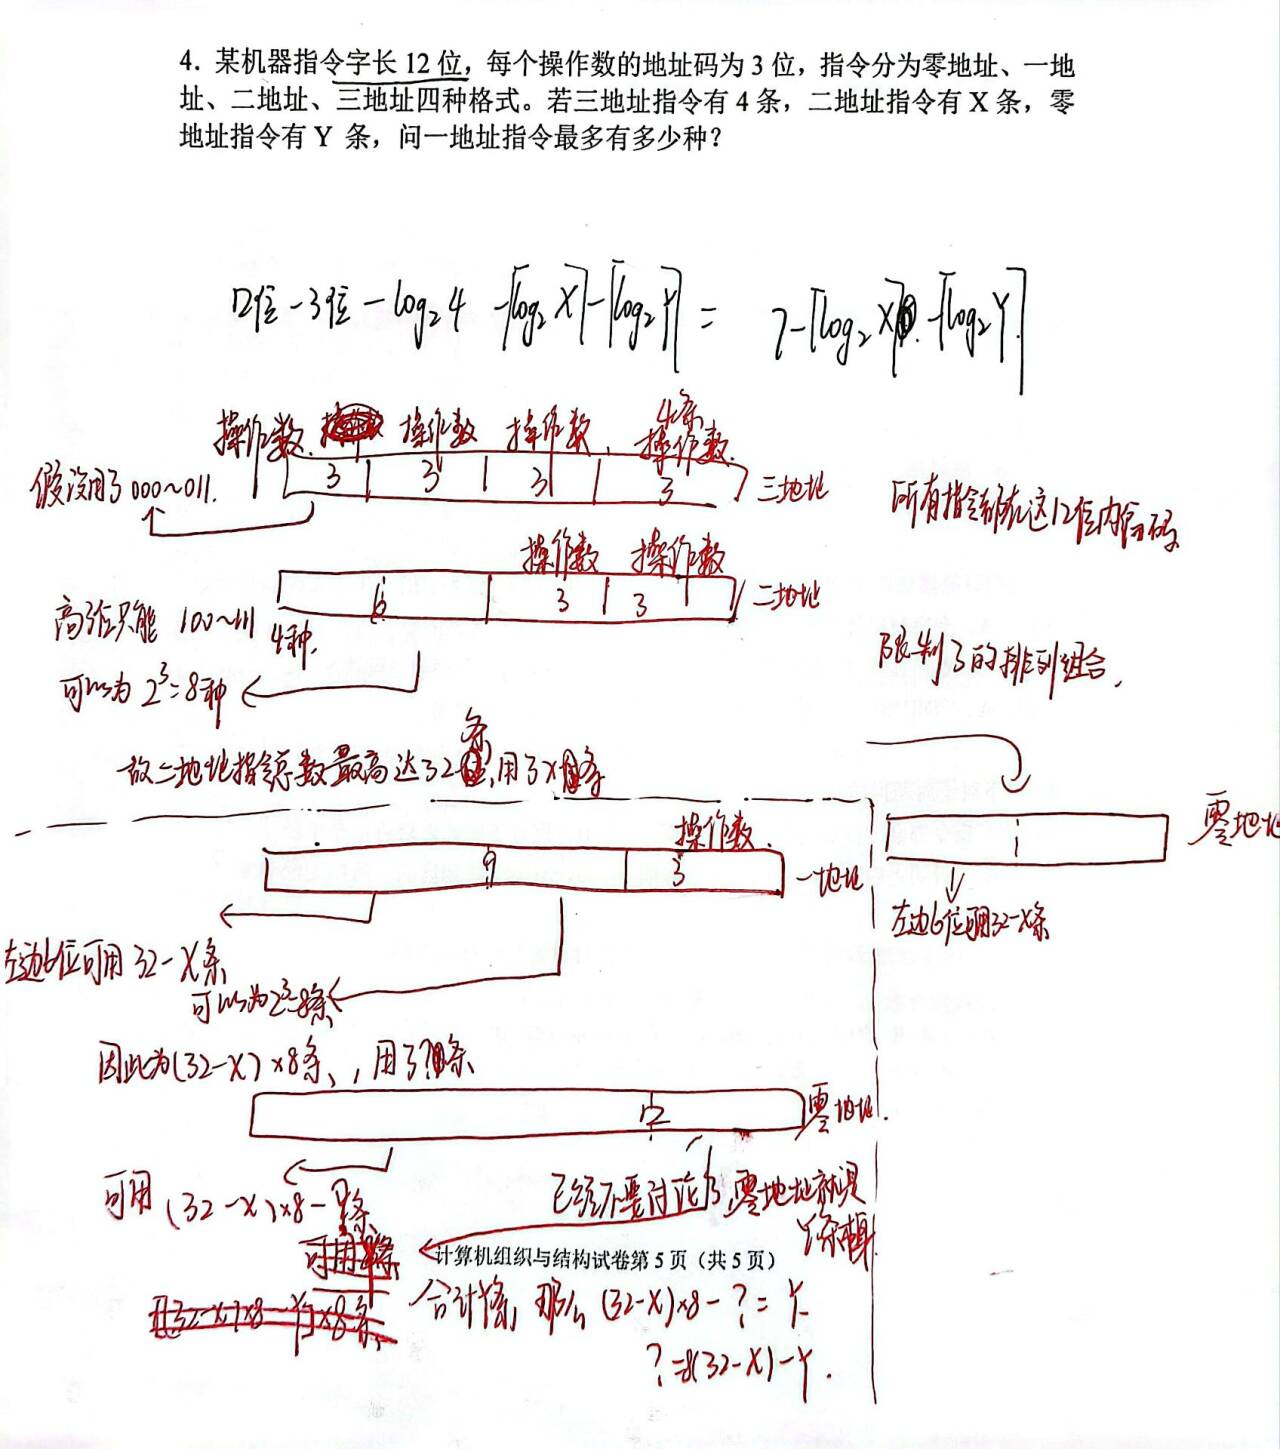 4. 某机器指令字长 12 位，每个操作数的地址码为 3 位，指令分为零地址、一地
址、二地址、三地址四种格式。若三地址指令有 4 条，二地址指令有 X 条，零
地址指令有 Y 条，问一地址指令最多有多少种？
12位-3位-log₂4-⌈log₂X⌉-⌈log₂Y⌉= 7-⌈log₂X⌉-⌈log₂Y⌉
4条
操作数 操作数 操作数 操作数
假设用了000~011. 3 3 3 3 三地址
所有指令都在这12位内编码
操作数 操作数
6 3 3 二地址
高3位只能 100~111 4种.
限制了的排列组合.
可以为 2³=8种
故二地址指令总数最高达32条,用了X条
操作数.
9 3 一地址
零地址
左边6位可用32-X条
左边6位可用 32-X条
可以为2³=8条
因此为(32-X)×8条, 用了?条
12 零地址.
可用 (32-X)×8-?条
已经不要讨论了,零地址就是
Y条
计算机组织与结构试卷第 5 页（共 5 页）
合计Y条, 那么 (32-X)×8-?=Y
?=8(32-X)-Y.